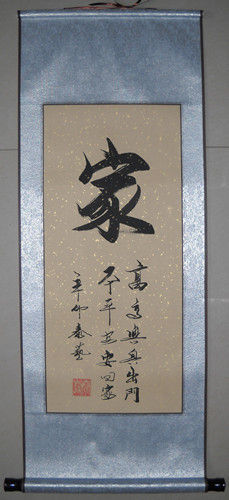 家
高高興興出門
平平安安回家
辛卯春藝